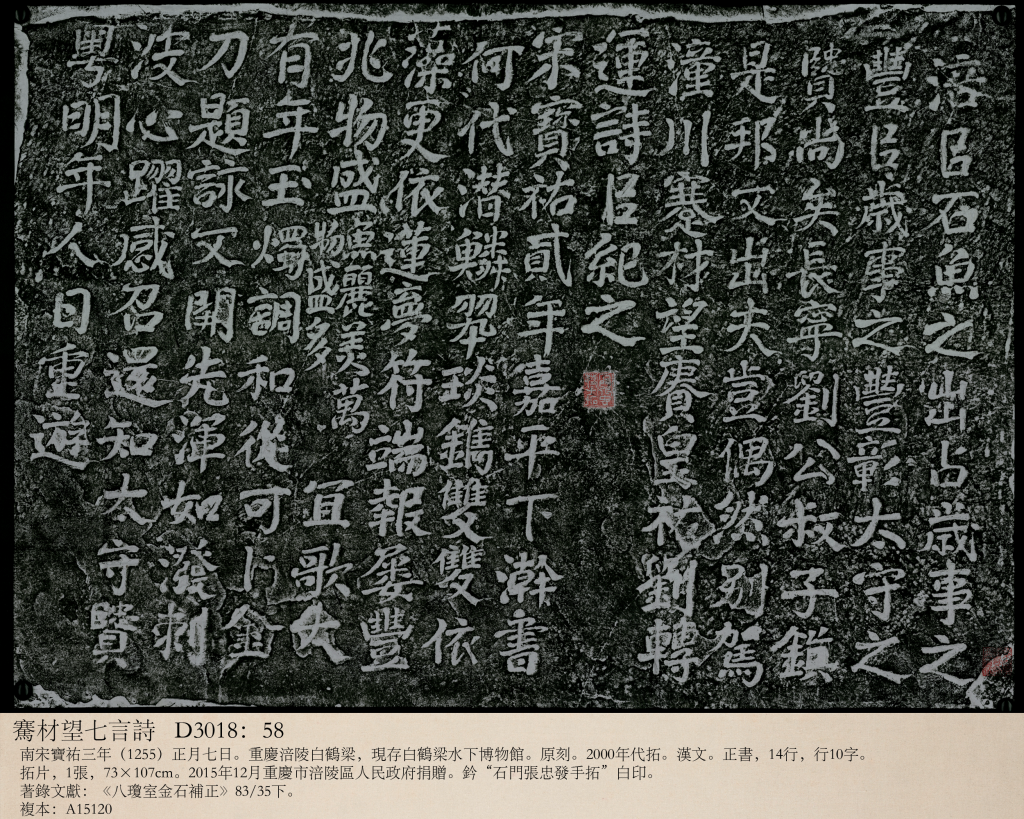 涪㠯石魚之出占歲事之
豐㠯歲事之豐彰太守之
賢尚矣長寧劉公叔子鎮
是邦又出夫豈偶然別駕
潼川蹇材望賡皇祐劉轉
運詩㠯紀之
宋寶祐貳年嘉平下澣書
何代潛鱗翠琰鐫雙雙依
藻更依蓮夢符端報屢豐
兆物盛魚麗美萬物盛多宜歌大
有年玉燭調和從可卜金
刀題詠又開先渾如潑剌
波心躍感召還知太守賢
粵明年人日重遊
騫材望七言詩 D3018:58
南宋寶祐三年（1255）正月七日。重慶涪陵白鶴梁，現存白鶴梁水下博物館。原刻。2000年代拓。漢文。正書，14行，行10字。
拓片，1張，73×107cm。2015年12月重慶市涪陵區人民政府捐贈。鈐“石門張忠發手拓”白印。
著錄文獻：《八瓊室金石補正》83/35下。
複本：A15120